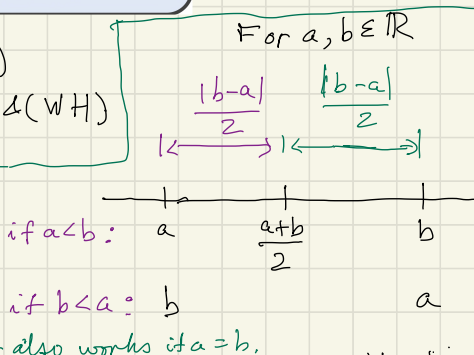 For a, b ∈ ℝ
)
d(WH)
|b-a|/2 |b-a|/2
if a<b: a (a+b)/2 b
if b<a: b a
also works if a = b.